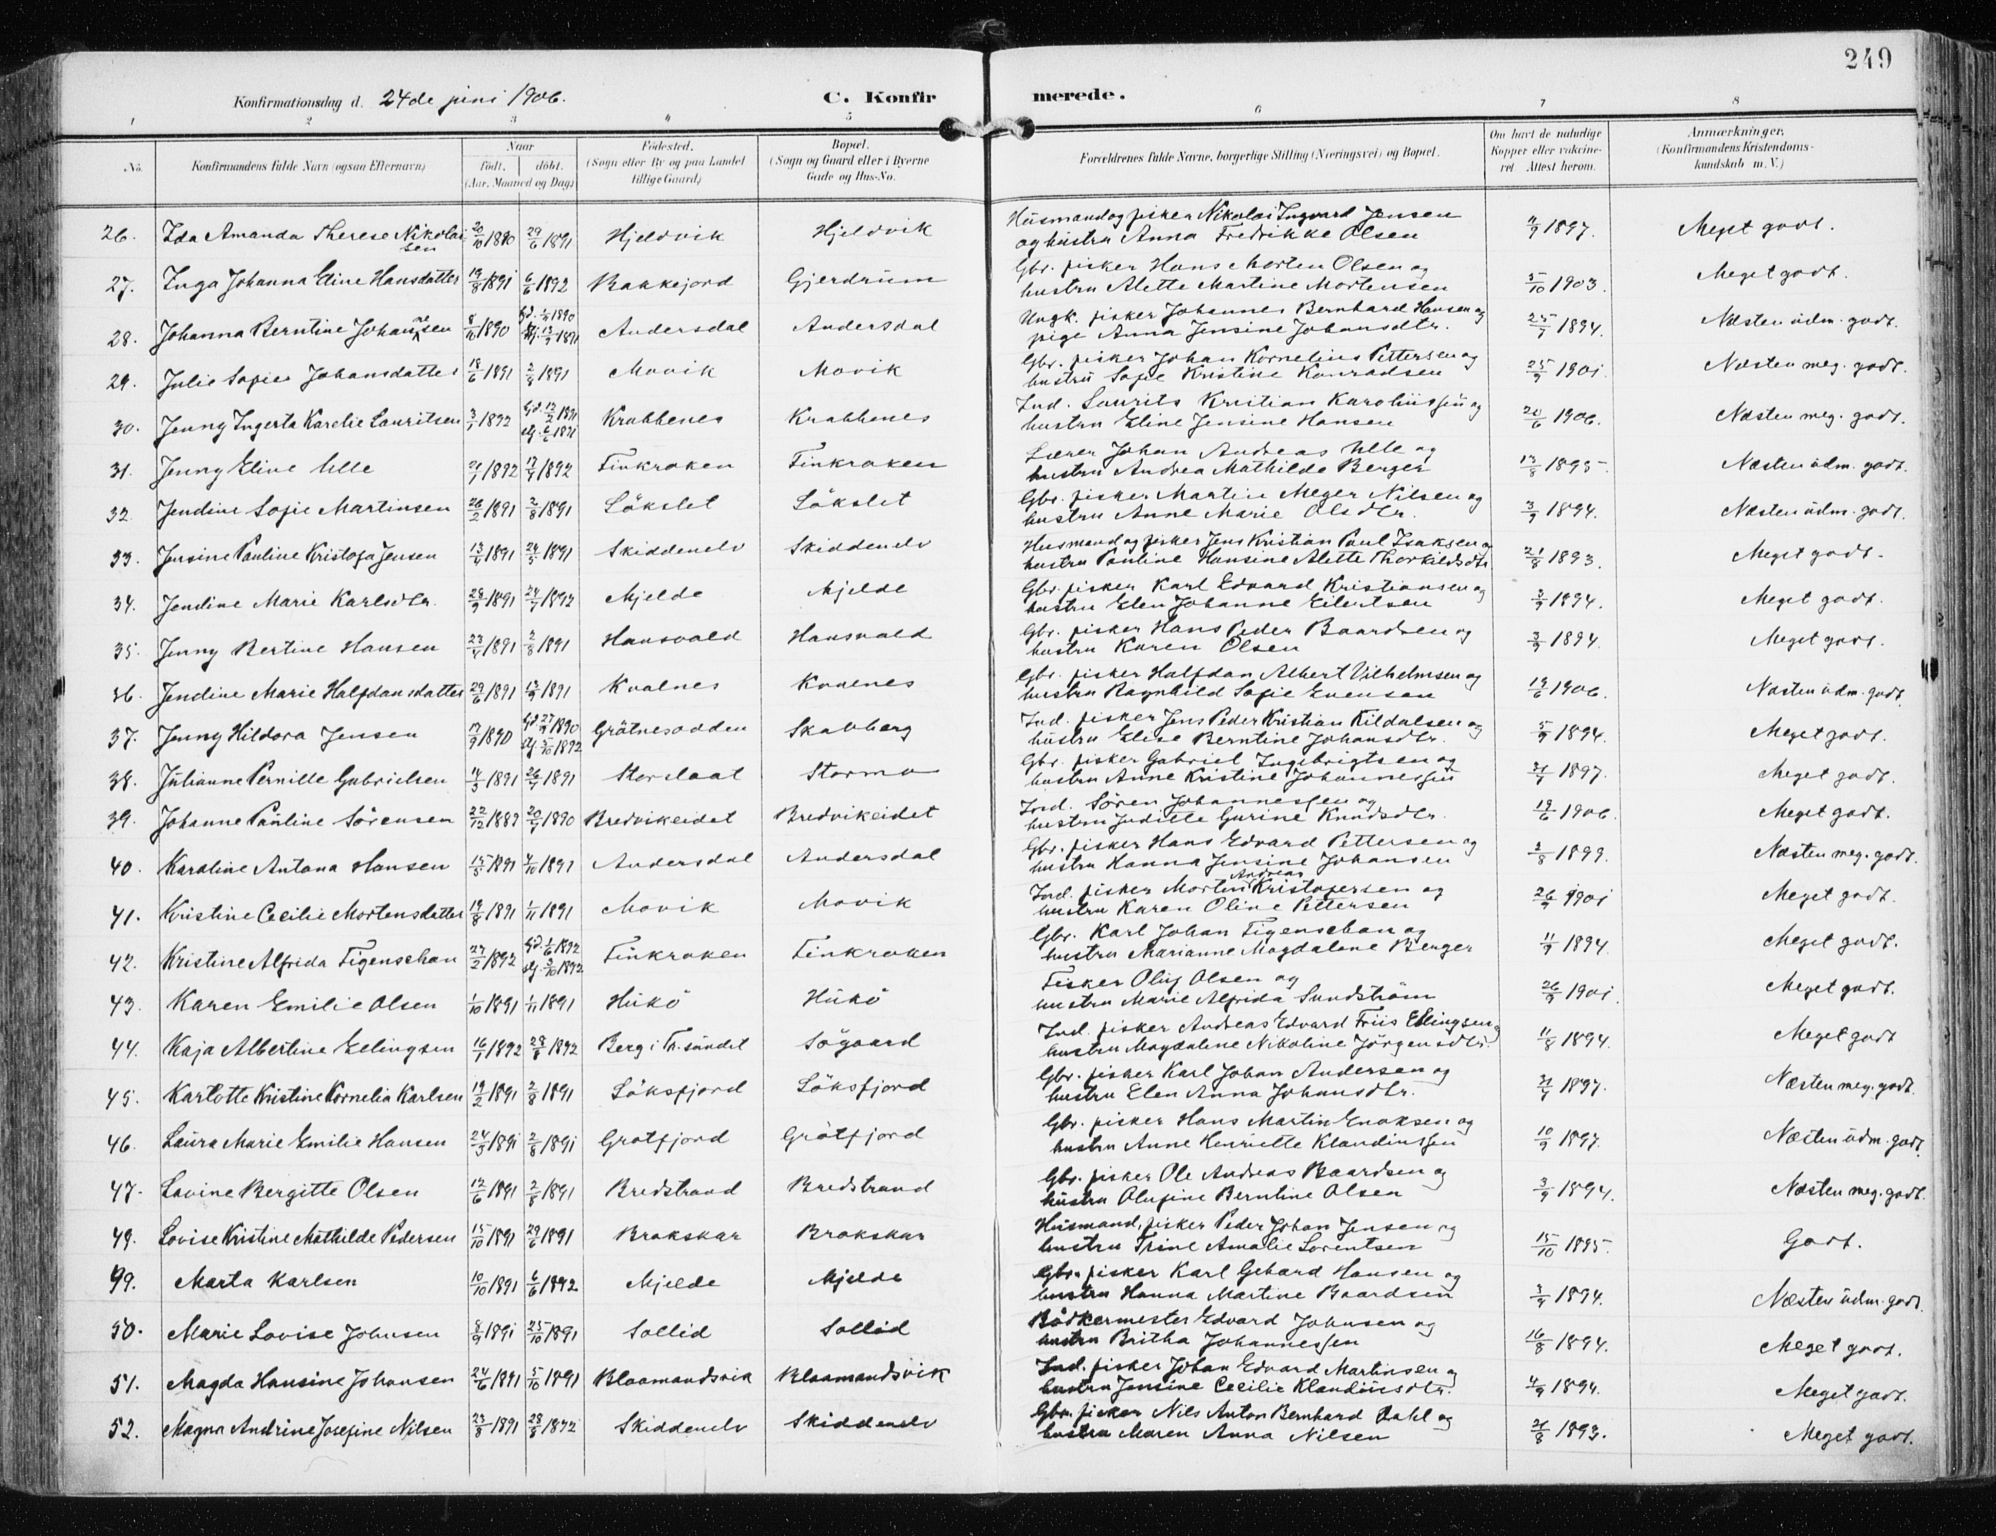 249
Konfirmationsdag d. 24de juni 1906. C. Konfirmerede.
1 2 3 4 5 6 7 8
No. Konfirmandens fulde Navn (ogsaa Efternavn) Naar født. døbt. (Aar, Maaned og Dag) Fødested. (Sogn eller By og paa Landet tillige Gaard) Bopæl. (Sogn og Gaard eller i Byerne Gade og Hus-No. Forældrenes fulde Navne, borgerlige Stilling (Næringsvei) og Bopæl. Om havt de naturlige Kopper eller vaccineret Attest herom. Anmærkninger. (Konfirmandens Kristendomskundskab m. V.)
26. Ida Amanda Therese Nikolaisen 20/10 1890 29/6 1891 Hjeldvik Hjeldvik Husmand og fisker Nikolai Ingvard Jensen og hustru Anna Fredrikke Olsen 1897. Meget godt.
27. Inga Johanna Eline Hansdatter 19/8 1891 6/6 1892 Bakkejord Gjerdrum Gbr. fisker Hans Morten Olsen og hustru Alette Martine Mortensen 5/10 1903. Meget godt.
28. Johanna Berntine Johannesen 8/10 1890 Andersdal Andersdal Ungk. fisker Johannes Bernhard Hansen og pige Anna Jensine Johansdtr. 1894. Næsten udm. godt.
29. Julie Sofie Johansdatter 18/6 1891 1891 Movik Movik Gbr. fisker Johan Kornelius Pettersen og hustru Sofie Kristine Konradsen 25/9 1901. Næsten meg. godt.
30. Jenny Ingerta Karelie Lauritsen 1892 Krabbenes Krabbenes Ind. Laurits Kristian Karoliussen og hustru Eline Jensine Hansen 20/6 1906. Næsten meg. godt.
31. Jenny Eline Ulle 1892 1892 Finkroken Finkroken Lærer Johan Andreas Ulle og hustru Andrea Mathilde Berger 13/8 1895. Næsten udm. godt.
32. Jendine Sofie Martinsen 26/2 1891 2/8 1891 Lökslet Lökslet Gbr. fisker Martin Meger Nilsen og hustru Anne Marie Olsdtr. 3/9 1894. Næsten udm. godt.
33. Jensine Pauline Kristofa Jensen 1891 24/5 1891 Skiddenelv Skiddenelv Husmand og fisker Jens Kristian Paul Isaksen og hustru Pauline Hansine Alette Thorkildsdtr. 21/8 1893. Meget godt.
34. Jendine Marie Karlsdtr. 28/9 1891 1892 Mjelde Mjelde Gbr. fisker Karl Edvard Kristiansen og hustru Elen Johanne Eilertsen 3/9 1894. Meget godt.
35. Jenny Bertine Hansen 1891 2/8 1891 Hansvold Hansvold Gbr. fisker Hans Peder Baardsen og hustru Karen Olsen 3/9 1894. Meget godt.
36. Jendine Marie Halfdansdatter 29/6 1891 13/9 1891 Kvalnes Kvalnes Gbr. fisker Halfdan Albert Vilhelmsen og hustru Ragnhild Sofie Evensen 19/6 1906. Næsten udm. godt.
37. Jenny Hildora Jensen 1890 Grötnesodden Skavberg Ind. fisker Jens Peder Kristian Kildalsen og hustru Eline Berntine Johansdtr. 5/9 1894. Meget godt.
38. Julianne Pernille Gabrielsen 14/5 1891 1891 Storslaat Stormo Gbr. fisker Gabriel Ingebrigtsen og hustru Anne Kristine Johannessen 1897. Meget godt.
39. Johanne Pauline Sörensen 22/12 1889 1890 Bredvikeidet Bredvikeidet Ind. Sören Johannessen og hustru Juditte Gurine Knudsdtr. 19/6 1906. Meget godt.
40. Karoline Antona Hansen 15/5 1891 4/10 1891 Andersdal Andersdal Gbr. fisker Hans Edvard Pettersen og hustru Hanna Jensine Johansen 1899. Næsten meg. godt.
41. Kristine Cecilie Mortensdatter 19/8 1891 1/11 1891 Movik Movik Ind. fisker Morten Andreas Kristofersen og hustru Karen Oline Pettersen 26/9 1901 Meget godt.
42. Kristine Alfrida Figenschau 27/2 1892 Finkroken Finkroken Gbr. Karl Johan Figenschau og hustru Marianne Magdalene Berger 11/9 1894. Meget godt.
43. Karen Emilie Olsen 1/10 1891 1/11 1891 Hükö Hükö Fisker Oluf Olsen og hustru Marie Alfrida Sundström 26/9 1901. Meget godt.
44. Kaja Albertine Ellingsen 1892 28/8 1892 Berg i Tr.sundet Sögaard Ind. fisker Andreas Edvard Friis Ellingsen og hustru Magdalene Nikoline Jörgensdtr. 11/8 1894. Meget godt
45. Karlotte Kristine Kornelia Karlsen 19/2 1891 2/8 1891 Löksfjord Löksfjord Gbr. fisker Karl Johan Andersen og hustru Elen Anna Johansdtr. 1897. Næsten meg. godt.
46. Laura Marie Emilie Hansen 24/3 1891 2/8 1891 Grötfjord Grötfjord Gbr. fisker Hans Martin Enoksen og hustru Anne Henriette Klaudiussen 10/9 1897. Næsten udm. godt.
47. Lovine Bergitte Olsen 12/6 1891 2/8 1891 Bredstrand Bredstrand Gbr. fisker Ole Andreas Baardsen og hustru Olufine Berntine Olsen 3/9 1894. Næsten meg. godt.
49. Lovise Kristine Mathilde Pedersen 15/10 1891 29/6 1891 Brokskar Brokskar Husmand, fisker Peder Johan Jensen og hustru Trine Amalie Lorentsen 15/10 1895. Godt.
99. Marta Karlsen 10/10 1891 6/6 1892 Mjelde Mjelde Gbr. fisker Karl Gehard Hansen og hustru Hanna Martine Baardsen 3/9 1894. Næsten udm. godt.
50. Marie Lovise Johnsen 8/9 1891 25/10 1891 Sollid Sollid Bödkermester Edvard Johnsen og hustru Britha Johannessen 16/8 1894. Meget godt.
51. Magda Hansine Johansen 24/6 1891 5/10 1891 Blaamandsvik Blaamandsvik Ind. fisker Johan Edvard Martinsen og hustru Jensine Cecilie Klaudiusdtr. 4/9 1894. Meget godt.
52. Magna Andrine Josefine Nilsen 23/8 1891 28/8 1892 Skiddenelv Skiddenelv Gbr. fisker Nils Anton Bernhard Dahl og hustru Maren Anna Nilsen 21/8 1893. Meget godt.